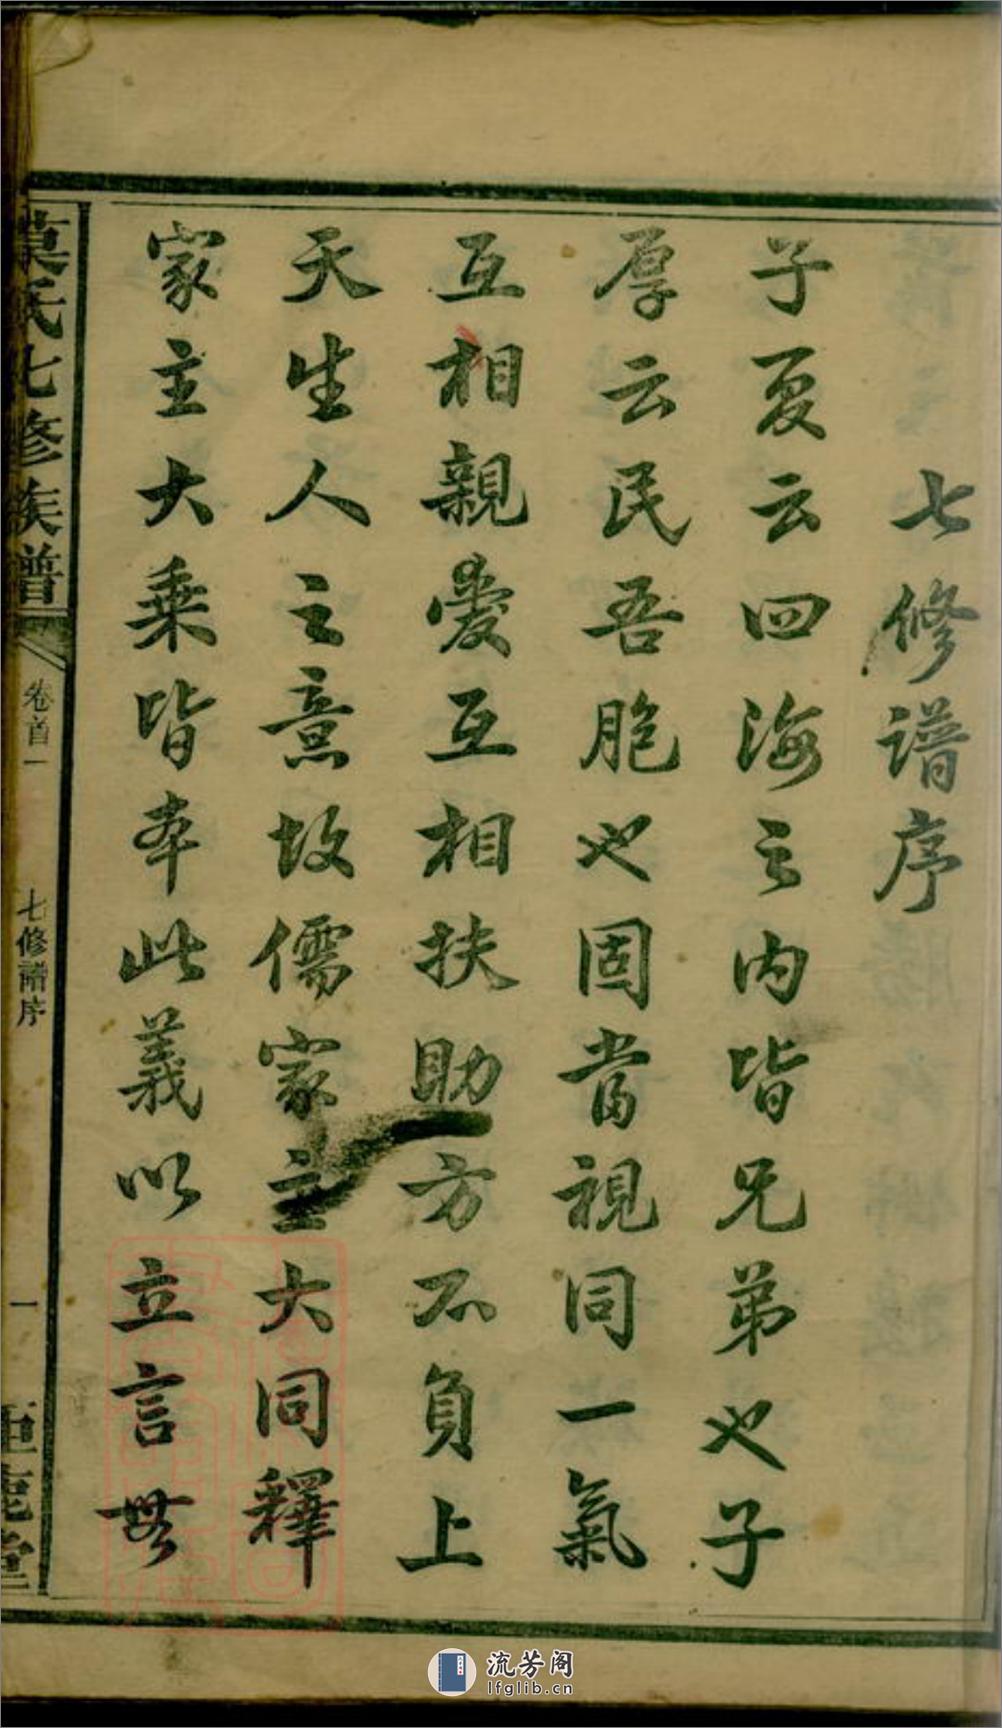 七修譜序
子夏云四海之内皆兄弟也子
厚云民吾胞也固當視同一氣
互相親愛互相扶助方不負上
天生人之意故儒家主大同釋
家主大乘皆本此義以立言無
莫氏七修族譜
卷首一
七修譜序
一
鉅鹿堂
流芳阁
lfglib.cn